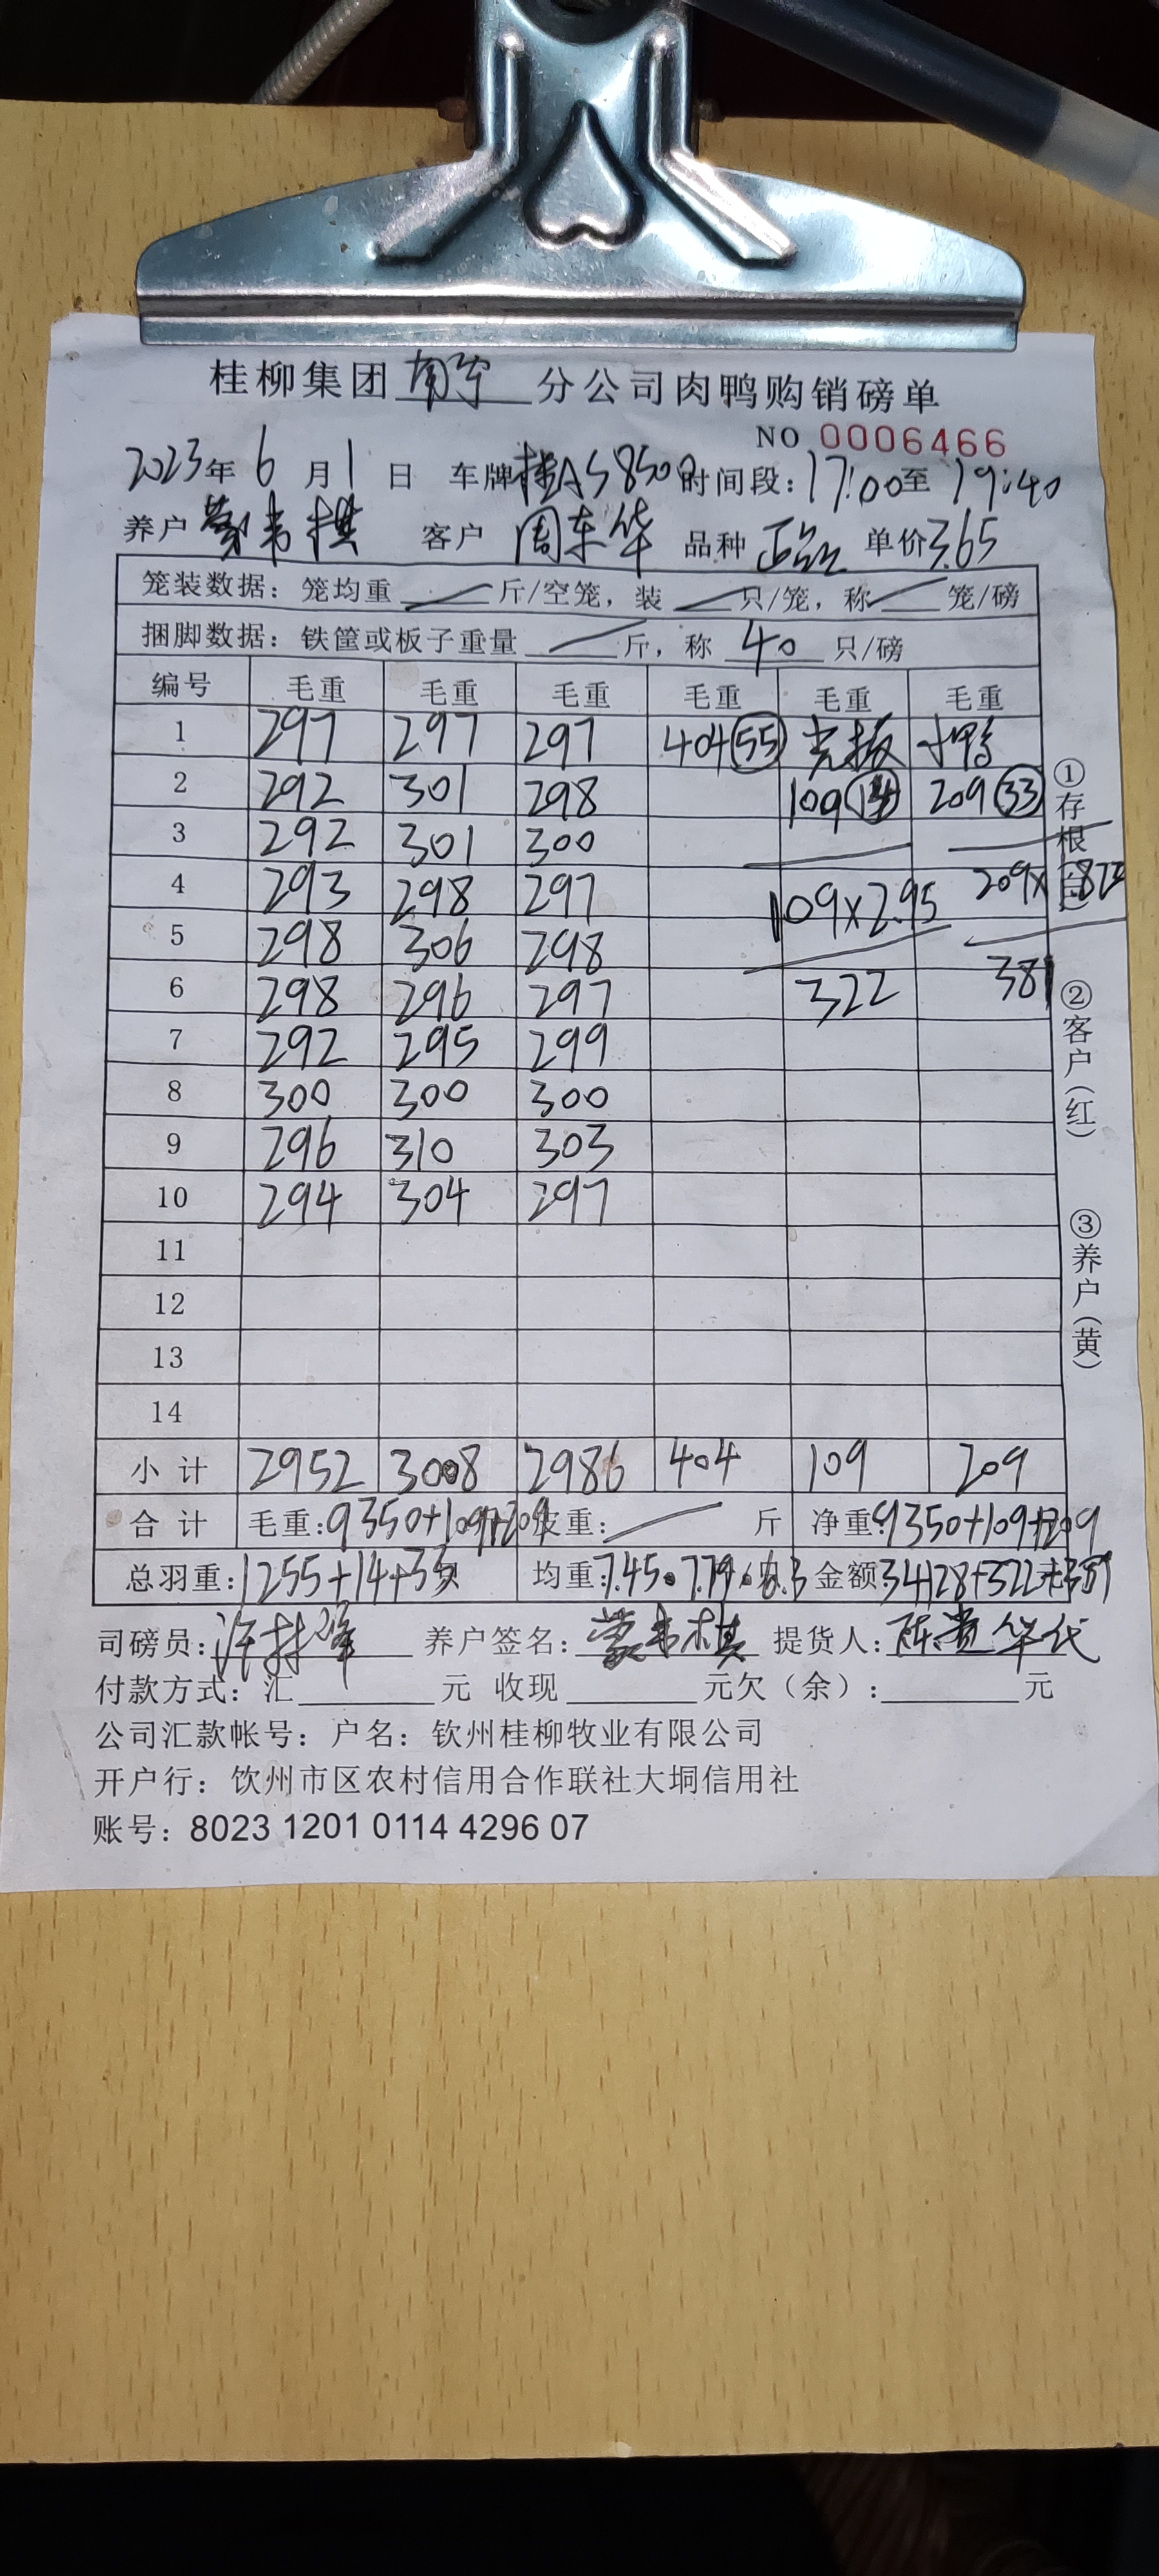 桂柳集团 南宁 分公司肉鸭购销磅单
NO 0006466
2023年 6 月 1 日 车牌 桂AS8500 时间段: 17:00至 19:40
养户 客户 周东华 品种 单价3.65
笼装数据: 笼均重 斤/空笼, 装 只/笼, 称 笼/磅
捆脚数据: 铁筐或板子重量 斤, 称 40 只/磅
编号 毛重 毛重 毛重 毛重 毛重 毛重
1 297 297 297 404(55) 光板 小鸭
2 292 301 298 109(14) 209(33)
3 292 301 300
4 293 298 297 109×2.95 209×
5 298 306 298
6 298 296 297 322 381
7 292 295 299
8 300 300 300
9 296 310 303
10 294 304 297
11
12
13
14
小计 2952 3008 2986 404 109 209
合计 毛重: 9350+109+209 皮重: 斤 净重: 9350+109+209
总羽重: 1255+14+33 均重: 7.45. 7.79. 6.3 金额: 34128+322+
司磅员: 养户签名: 蒙韦棋 提货人: 陈贵华代
付款方式: 汇 元 收现 元欠(余): 元
公司汇款帐号: 户名: 钦州桂柳牧业有限公司
开户行: 饮州市区农村信用合作联社大垌信用社
账号: 8023 1201 0114 4296 07
①存根(白)
②客户(红)
③养户(黄)